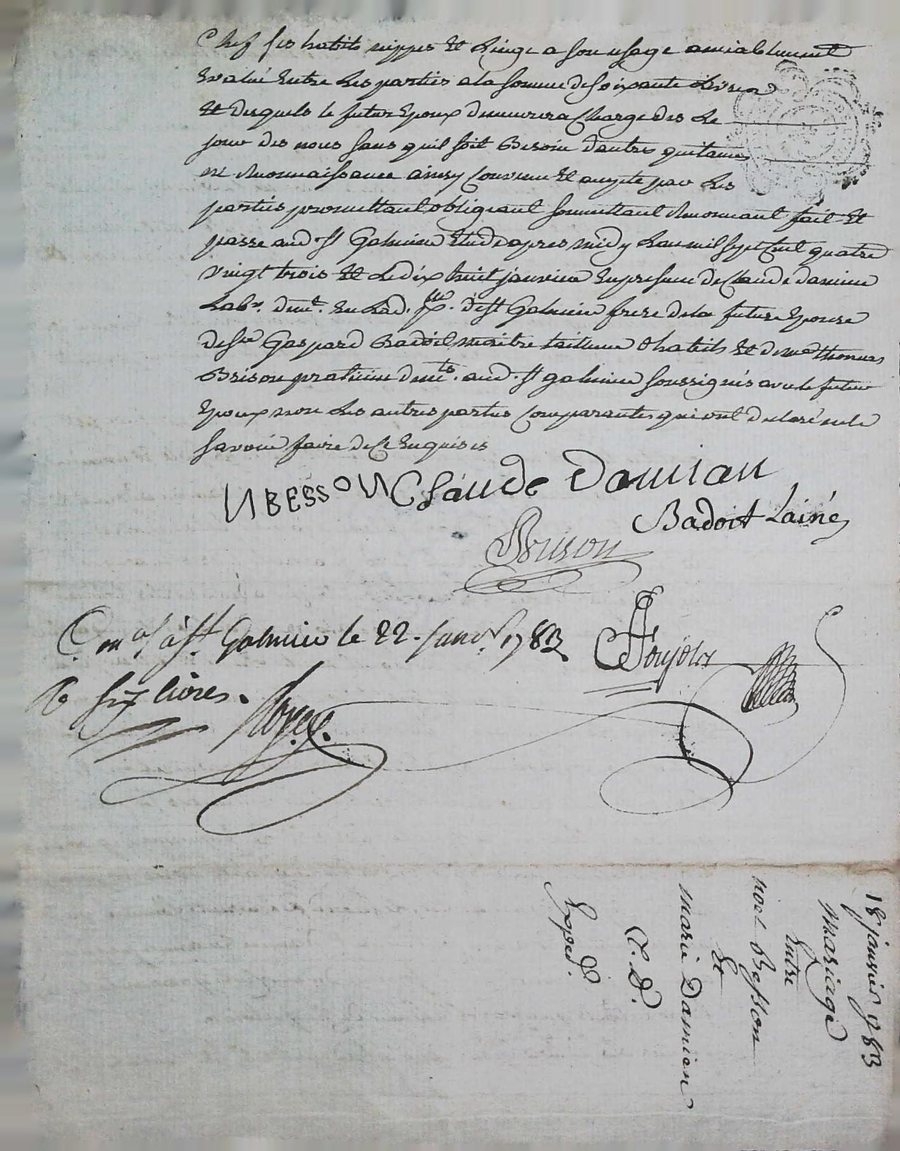 Chef ses habits nippes et Linge a son usage amiablement
Evalué Entre Les parties a la somme de soixante Livres
et desquels le futur Epoux demeurera Chargé des Le
jour des noces sans quil soit Besoin dautres quitance
ni Reconnaissance ainsy Convenu et accepté par Les
parties promettant obligeant soumettant Renonceant fait et
passé aud. St Galmier Etude apres midy Lan mil sept cent quatre
vingt trois et Le dix huit janvier En presence de Claude damien
Lab.r dem.t En Lad. p.sse de St Galmier frere de la future Epouse
de sr Gaspard Badoil maitre tailleur dhabits et de me thomas
Brison praticien dem.ts aud. St galmier soussignés avec le futur
Epoux non Les autres parties Comparantes qui ont declaré ne le
savoir faire de ce Enquises
N BESSON Claude Damian
Badoit Lainé
Brison
C. en ol à St Galmier le 22. janv.r 1783
R. six livres.
18 janvier 1783
Mariage
Entre
noel Besson
Et
marie Damien
C. D.
Exped.